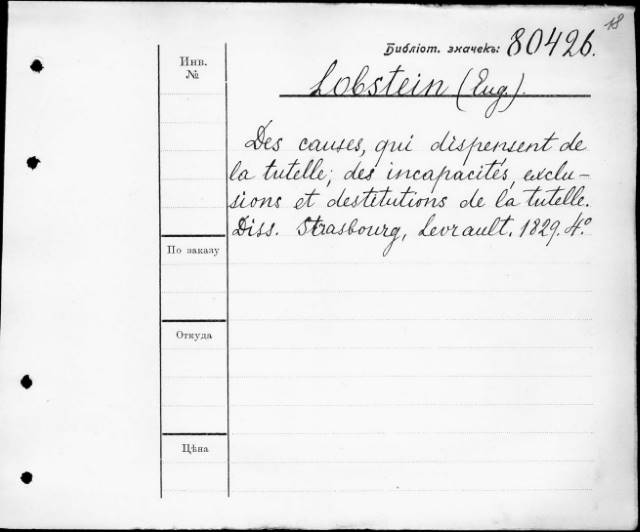 18
Библіот. значекъ: 80426.
Инв.
№
Lobstein (Eug.).
Des causes, qui dispensent de
la tutelle; des incapacités, exclu-
sions et destitutions de la tutelle.
Diss. Strasbourg, Levrault. 1829. 4.°
По заказу
Откуда
Цѣна